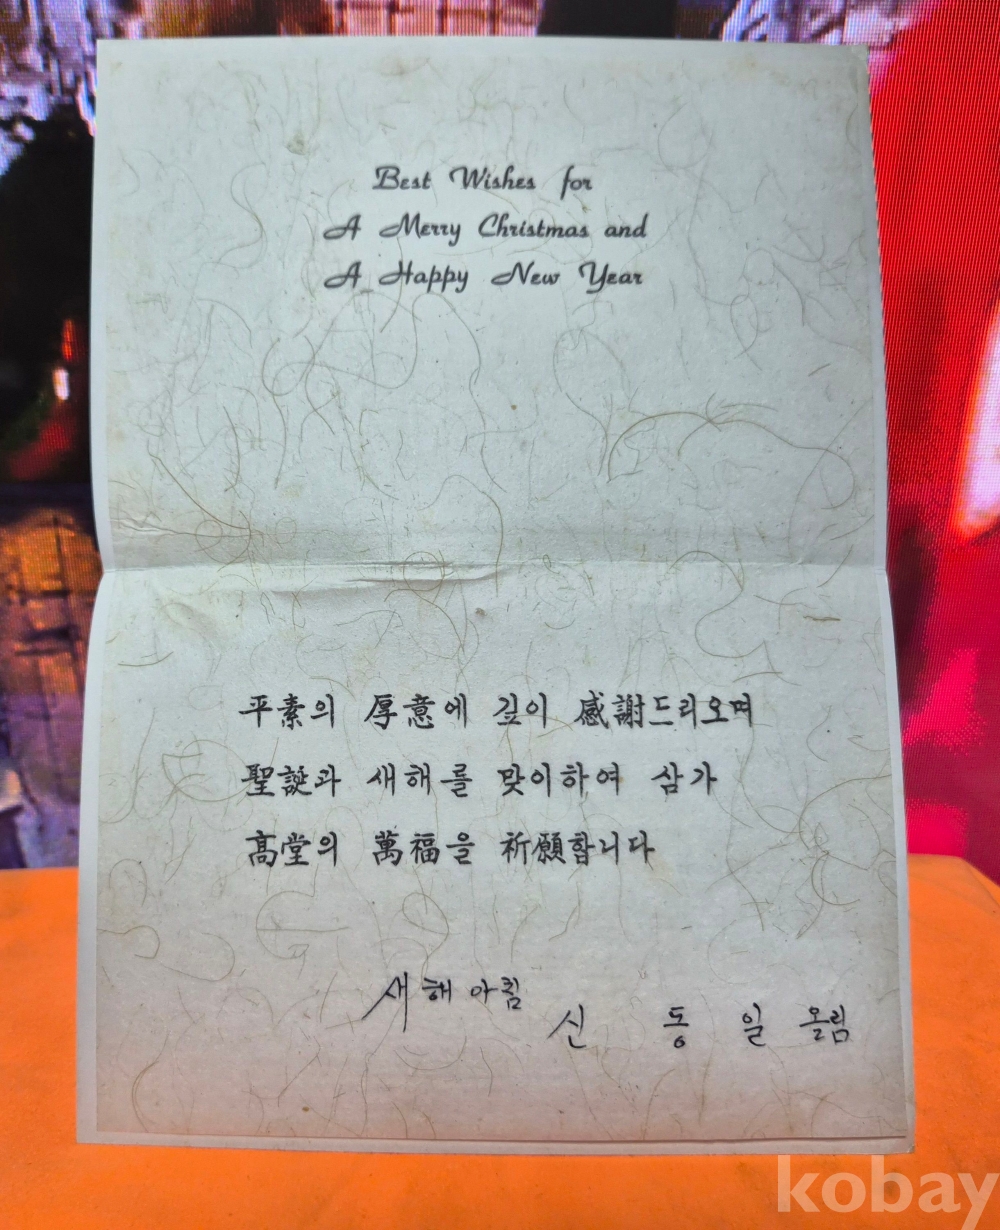 Best Wishes for
A Merry Christmas and
A Happy New Year
平素의 厚意에 깊이 感謝드리오며
聖誕과 새해를 맞이하여 삼가
高堂의 萬福을 祈願합니다
새해아침
신 동 일 올림
kobay